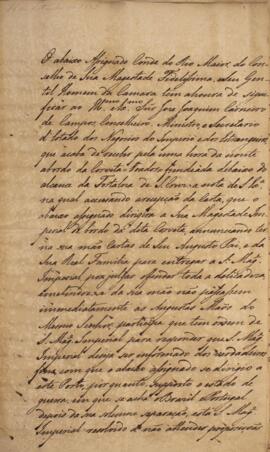 O abaixo Assignado Conde do Rio Maior, do Con-
celho de Sua Magestade Fidelissima, e Seu Gen-
til Homem da Camara tem a honra de signi-
ficar ao Snr José Joaquim Carneiro
de Campos, Conselheiro, Ministro, e Secretario
d'Estado dos Negocios do Imperio e dos Estrangeiros,
que acaba de receber pela uma hora da noute
abordo da Corveta Voadora fundeada debaixo do
alcance da Fortaleza de S. Cruz, a nota de
na qual accusando a recepção da Carta, que o
abaixo assignado dirigira a Sua Magestade Im-
perial de bordo desta Corveta, annunciando ter
na sua mão Cartas de Seu Augusto Pai, e da
Sua Real Familia para entregar a S. Mag.
Imperial por julgar offender toda a delicadeza,
e se da sua mão não passassem
immediatamente as Augustas Mãos do
Mesmo Senhor, participa que tem ordem de
S. Mag. Imperial para responder que S. Mag.
Imperial deseja ser informado dos verdadeiros
fins com que o abaixo assignado se dirigio a
este Porto, porquanto, supposto o estado de
guerra em que se acha o Brasil e Portugal
depois da sua solemne separação, está S. Mag.
Imperial resolvido a não attender proposições